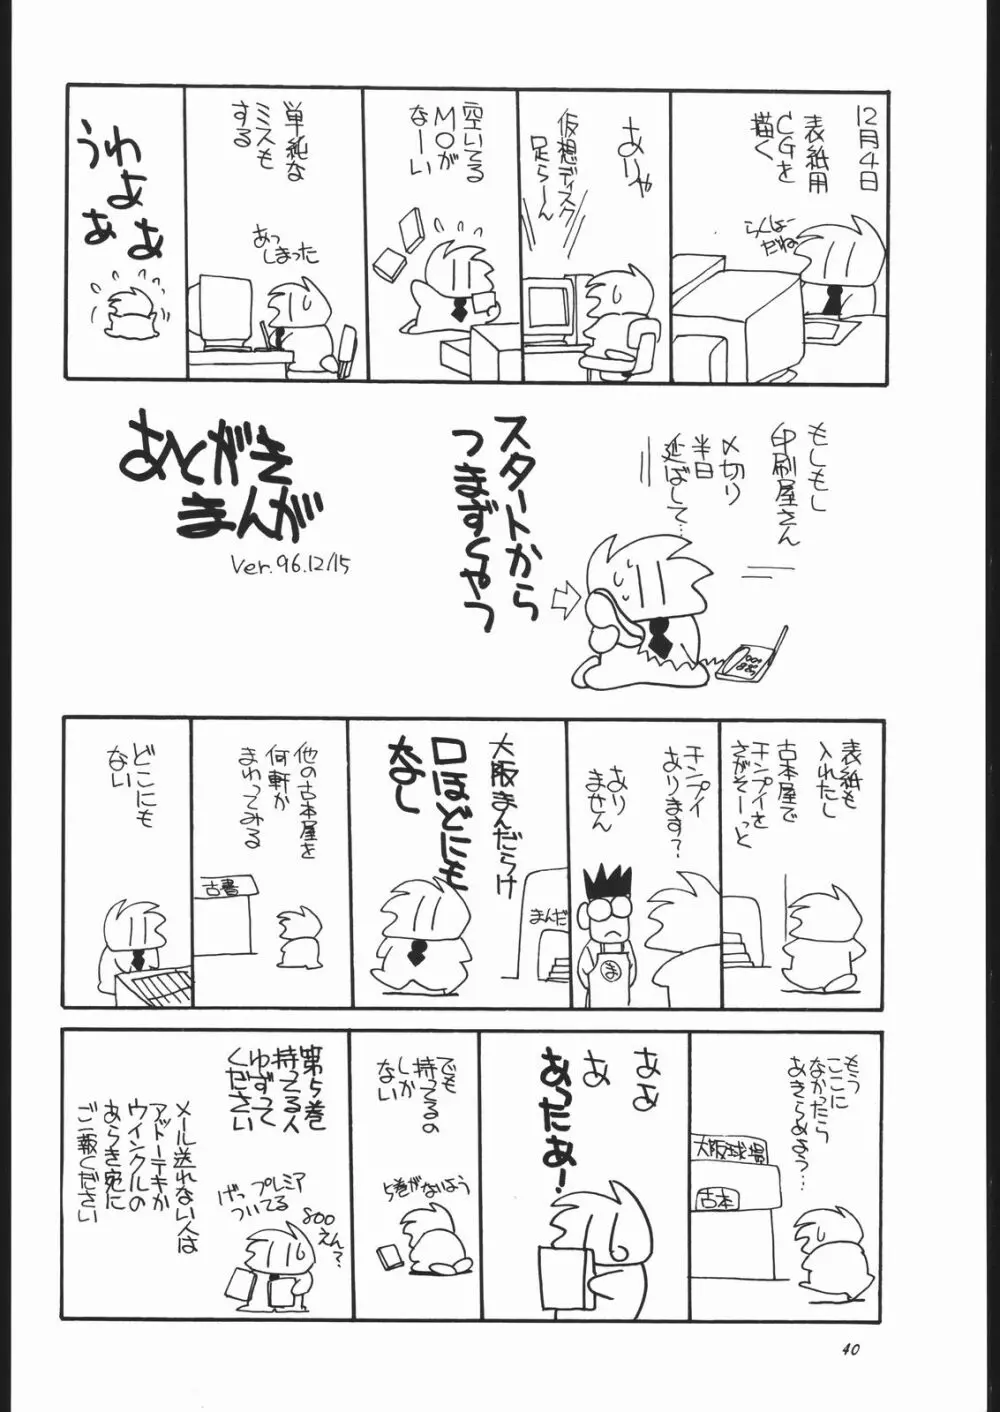 12月4日
表紙用
CGを
描く
らくしょー
だね
ありゃ
仮想ディスク
足らーん
空いてる
MOが
なーい
単純な
ミスも
する
あっ
しまった
うわ
よぁ
ぁ
もしもし
印刷屋さん
〆切り
半日
延ばして…
スタートから
つまずくやつ
あとがき
まんが
Ver.96.12/15
表紙も
入れたし
古本屋で
チンプイを
さがそーっと
チンプイ
あります?
あり
ません
ま
大阪まんだらけ
まんだ
口ほどにも
なし
他の古本屋を
何軒か
まわってみる
古書
どこにも
ない
もう
ここに
なかったら
あきらめよう…
大阪球場
古本
ああ
あ
あったあー!
でも
持ってるの
しか
ない
5巻がないよう
第5巻
持ってる人
ゆずって
ください
800
えん?
げっ プレミア
ついてる
メール送れない人は
アットーテキか
ウインクルの
あらき宛に
ご一報ください
40